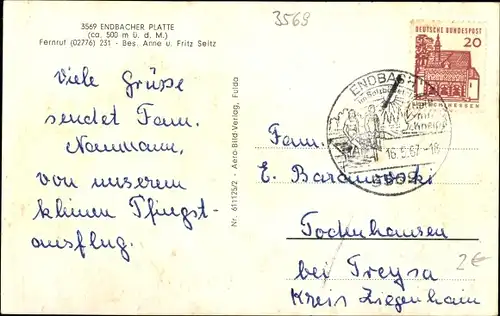 3569 ENDBACHER PLATTE
(ca. 500 m ü. d. M.)
Fernruf (02776) 231 - Bes. Anne u. Fritz Seitz
3569
DEUTSCHE BUNDESPOST
20
Viele Grüsse
sendet Fam.
Naumann,
von unserem
kleinen Pfingst-
ausflug.
Nr. 611125/2 - Aero-Bild-Verlag, Fulda
16.5.67-18
Fam.
E. Baranowski
Tockenhausen
bei Treysa
Kreis Ziegenhain
2€